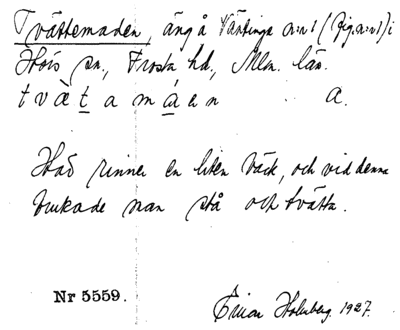 Tvättemaden, äng å Häntinge n:r 1 (Fig. n:r 1) i
Höös sn, Frosta hd, Mlm. län.
tvæ̀tamáen a.
Här rinner en liten bäck, och vid denna
brukade man stå och tvätta.
Nr 5559.
Einar Holmberg. 1927.